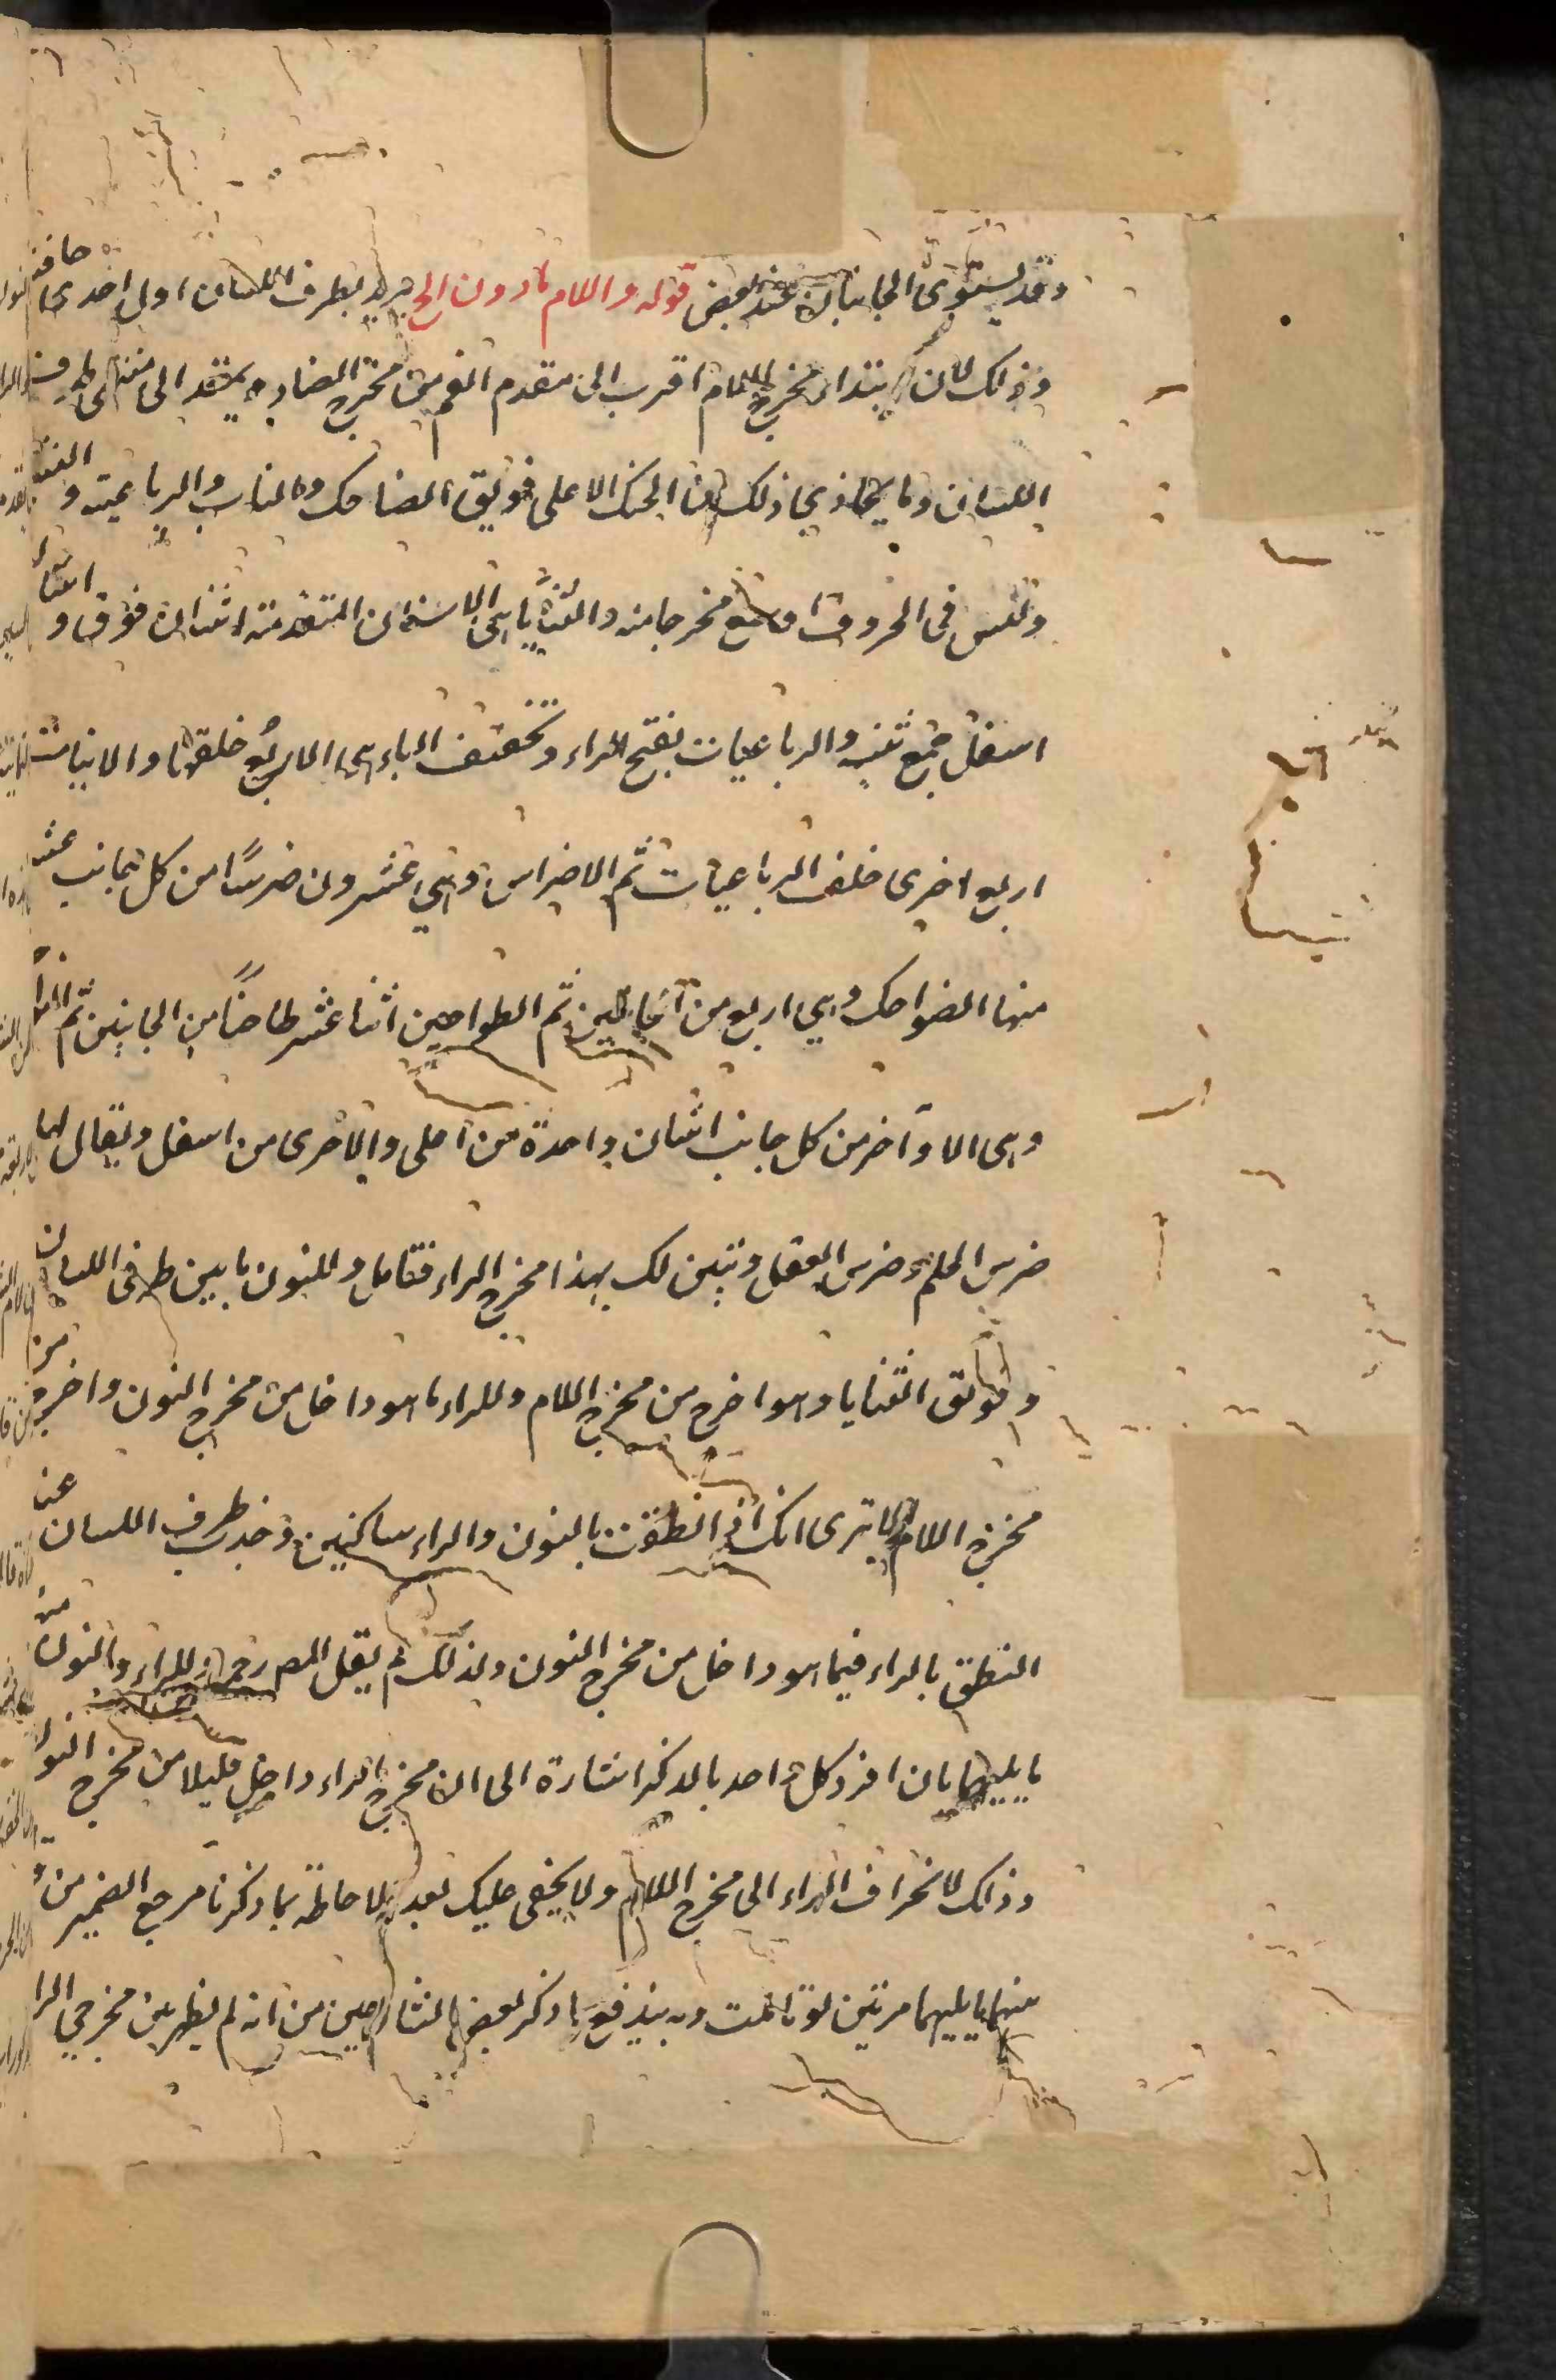 وقد يستوى الجانبان عند بعض قوله واللام ما دون الخ يريد بطرف اللسان اول احدى حافتيه
وذلك لان ابتداء مخرج اللام اقرب الى مقدم الفم من مخرج الضاد ويمتد الى منتهى طرف
اللسان وما يحاذي ذلك من الحنك الاعلى فويق الضاحك والناب والرباعية والثنية
وليس في الحروف اوسع مخرجا منه والثنايا هي الاسنان المتقدمة اثنان فوق واثنان
اسفل جمع ثنية والرباعيات بفتح الراء وتخفيف الباء هي الاربع خلفها والانياب
اربع اخرى خلف الرباعيات ثم الاضراس وهي عشرون ضرسًا من كل جانب عشر
منها الضواحك وهي اربع من الجانبين ثم الطواحين اثنا عشر طاحنًا من الجانبين ثم النواجذ
وهي الاواخر من كل جانب اثنان واحدة من اعلى والاخرى من اسفل ويقال لها
ضرس الحلم وضرس العقل وتبين لك بهذا مخرج الراء فتامل وللنون ما بين طرفي اللسان
وفويق الثنايا وهو اخرج من مخرج اللام وللراء ما هو داخل من مخرج النون واخرج من
مخرج اللام الا ترى انك اذا نطقت بالنون والراء ساكنين وجدت طرف اللسان عند
النطق بالراء فيما هو داخل من مخرج النون ولذلك لم يقل المص رحمه للراء والنون منهما
ما يليهما بان افرد كل واحد بالذكر اشارة الى ان مخرج الراء داخل قليلا من مخرج النون
وذلك لانحراف الراء الى مخرج اللام ولا يخفى عليك بعد الاحاطة بما ذكرنا مرجع الضمير من
منهما ما يليهما مرتين لو تاملت وبه يندفع ما ذكر بعض الشارحين من انه لم يظهر من مخرجي الراء